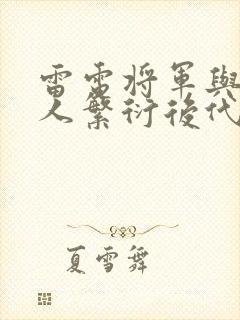 雷電将軍與
人繁衍後代
夏雪舞